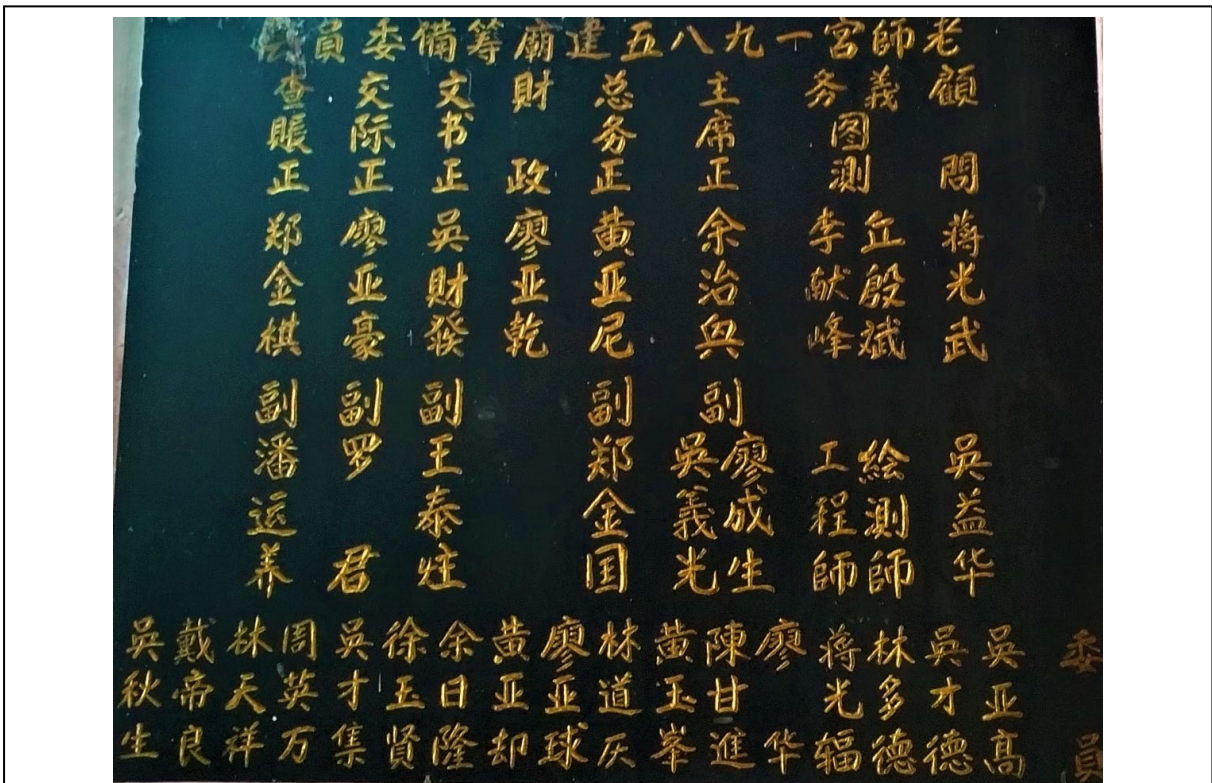 老師宮一九八五建廟籌備委員
顧問 蔣光武 吳益华
義务图測 丘殷斌 繪測師
李献峰 工程師
主席正 余治興 副 廖成生
吳義光
总务正 黄亚尼 副 郑金国
財政 廖亚乾
文书正 吳財發 副 王泰炷
交际正 廖亚豪 副 罗君
查賬正 郑金棋 副 潘运养
委員
吳亚高
吳才德
林多德
蔣光辐
廖华
陳甘進
黄玉峯
林道灰
廖亚球
黄亚却
余日隆
徐玉贤
吳才集
周英万
林天祥
戴帝良
吳秋生